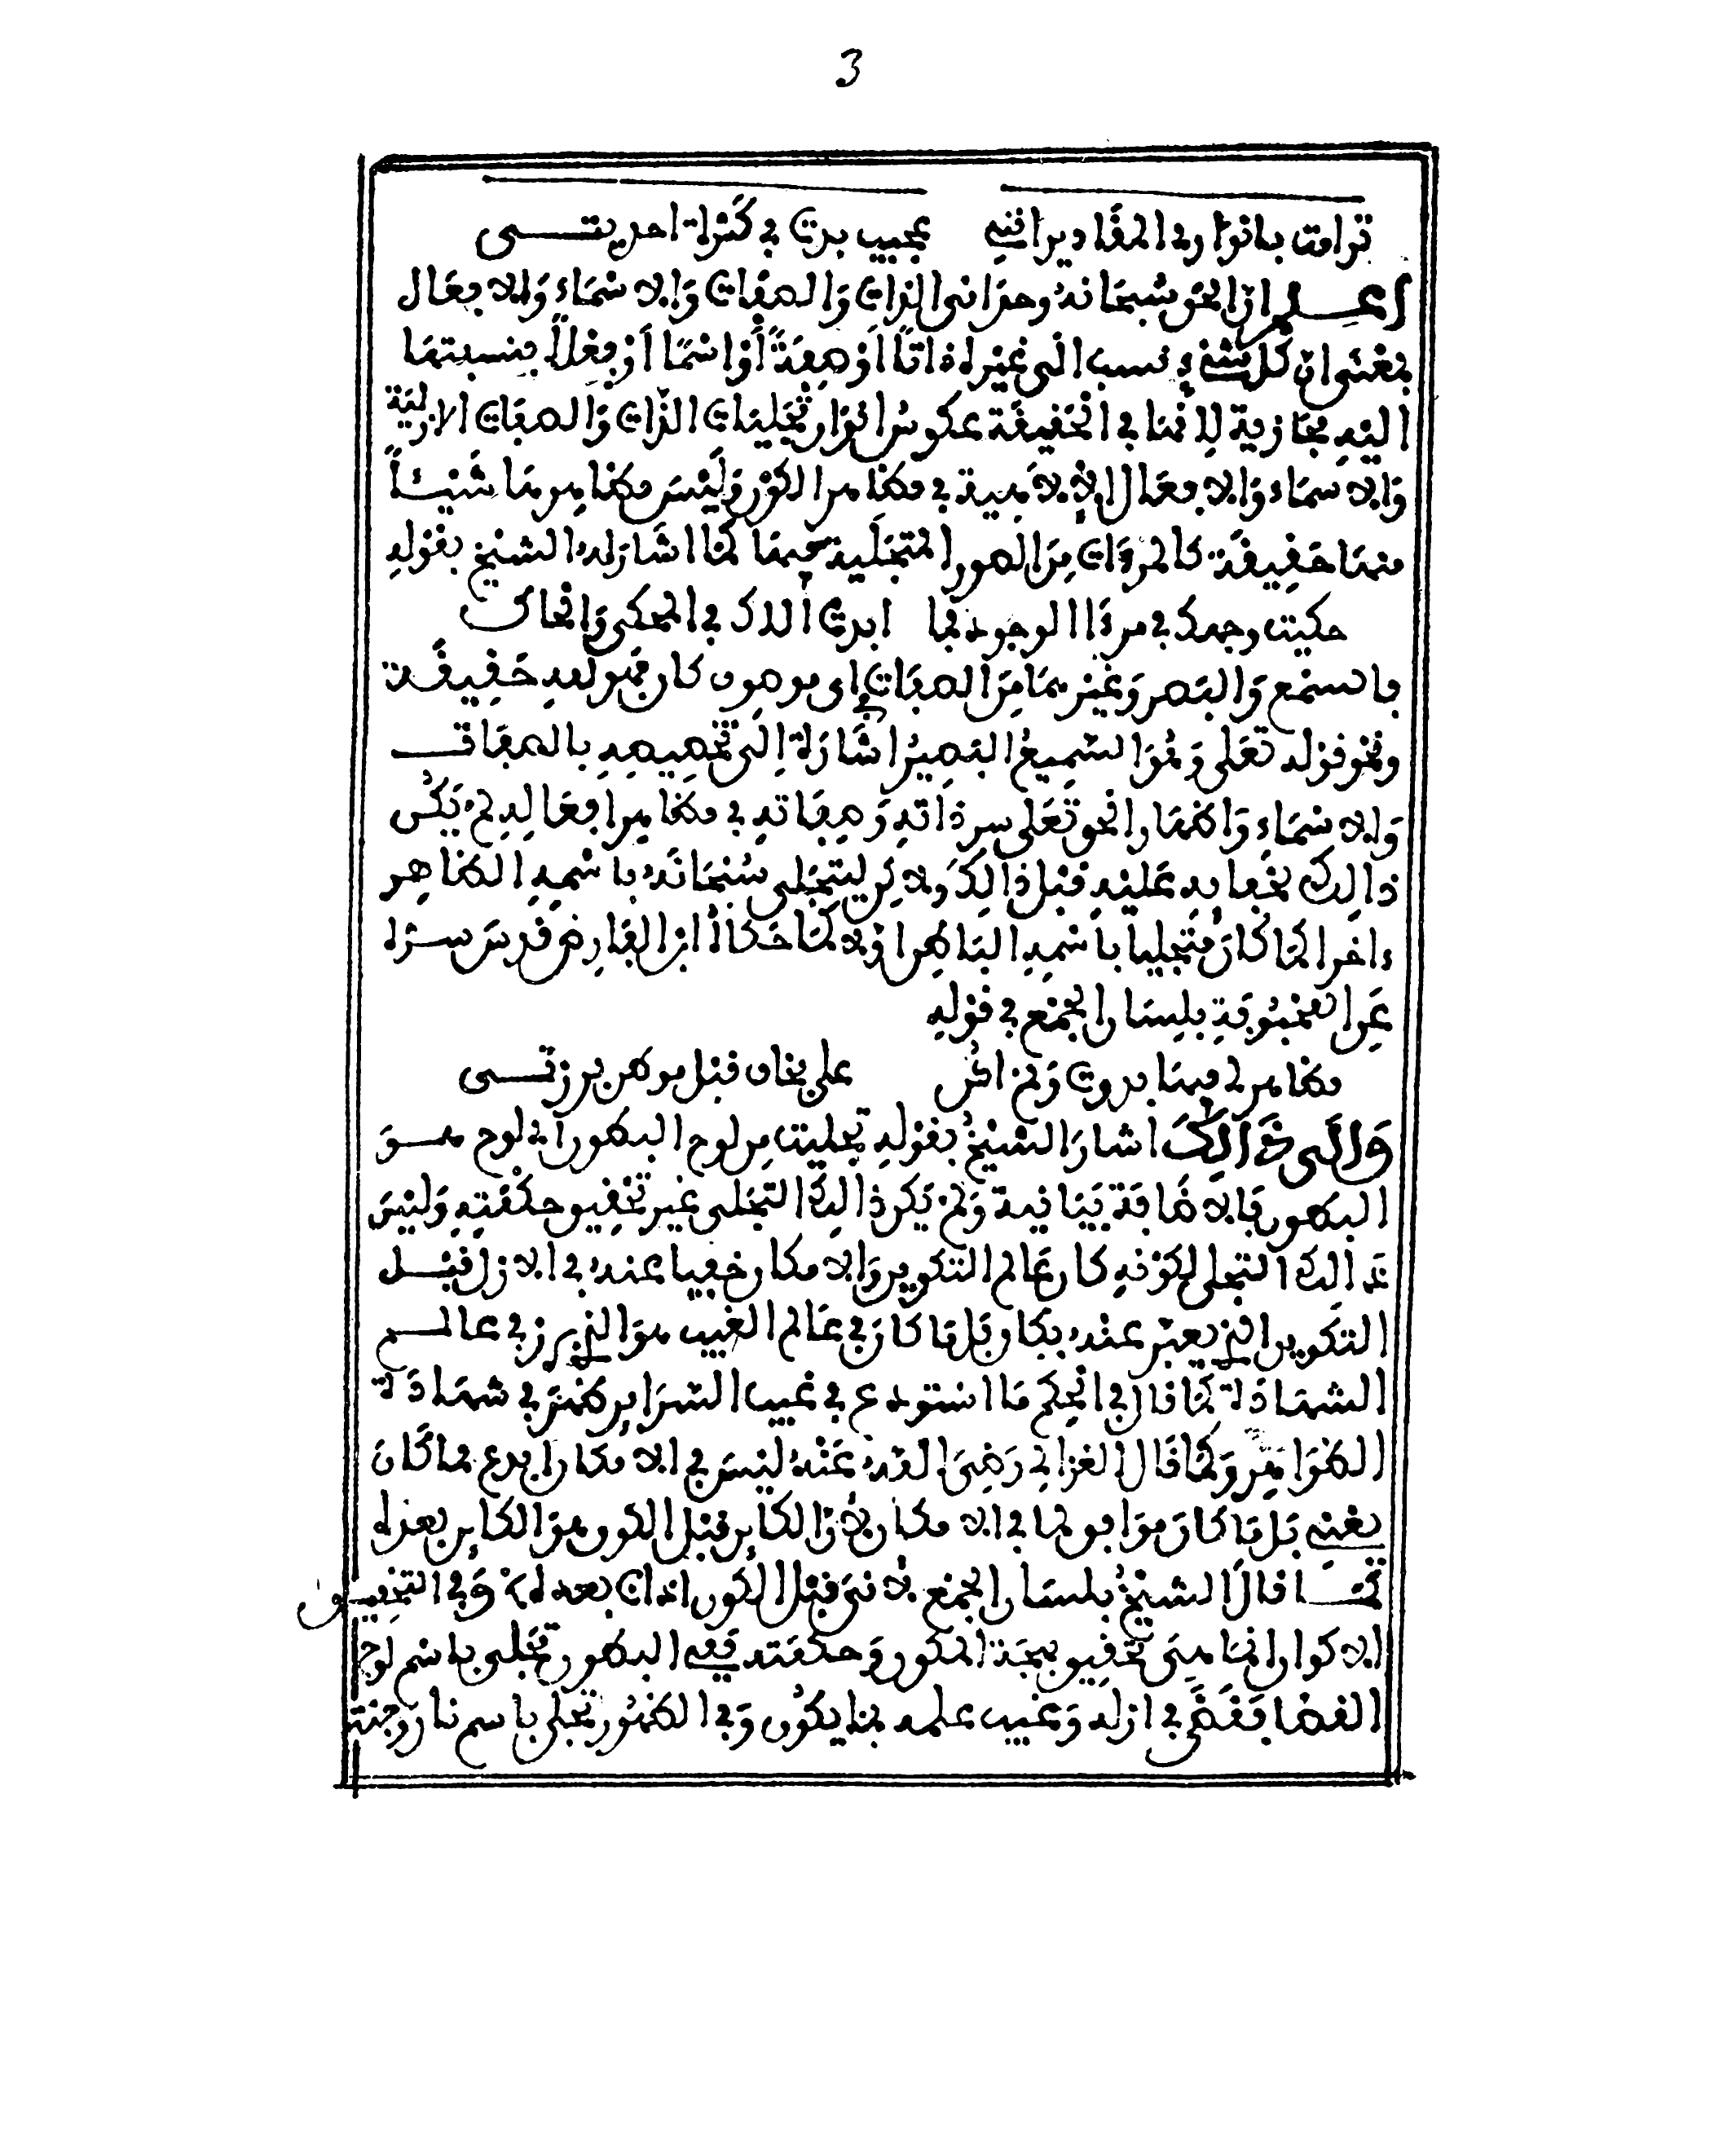 3
تراءت بانوار المقادير اننى عجيب بدت في كثرة احديتى
اعلم ان الحق سبحانه وحدانى الذات والصفات والاسماء والافعال
بمعنى ان كل شئ نسب الى غيره ذاتا أو صفة أو اسما أو فعلا فنسبتها
اليه مجازية لانها في الحقيقة عكوس انوار تجليات الذات والصفات الازلية
والاسماء والافعال الالاهية في مظاهر الكون وليس مظاهرها شيئا
منها حقيقة كالمرءات من الصور المتجلية فيها كما اشار له الشيخ بقوله
حكيت وجهك في مرءا الوجود فما ابديت الاك في المحكى والحاك
فالسمع والبصر وغيرهما من الصفات في اى موصوف كان فهو له حقيقة
ونحو قوله تعلى وهو السميع البصير اشارة الى تخصيصه بالصفات
والاسماء واظهار الحق تعلى سر ذاته وصفاته في مظاهر افعاله لم يكن
ذالك لخفايه عليه قبل ذالك ولاكن ليتجلى سبحانه باسمه الظاهر
ءاخرا كما كان متجليا باسمه الباطن اولا كما حكاه ابن الفارض قدس سره
عن المحبوبة بلسان الجمع في قوله
مظاهر لى فيها بدوت ولم اكن على بخاف قبل موطن برزتى
والى ذالك اشار الشيخ بقوله تجليت من لوح البطون في لوح هو
البطون فالاضافة بيانية ولم يكن ذالك التجلى غير تحقيق حكمته وليس
ذالك التجلى لكونه كان عالم التكوين والامكان خفيا عنه في الازل قبل
التكوين الذى يعبر عنه بكان بل ما كان في عالم الغيب هو الذى برز في عالم
الشهادة كما قال في الحكم ما استودع في غيب السراير ظهر في شهادة
الظواهر وكما قال الغزالي رضى الله عنه ليس في الامكان ابدع مما كان
يعنى بل ما كان هو افق لما في الامكان لان الكاين قبل الكون هو الكاين بعده
كما قال الشيخ بلسان الجمع لانى قبل الكون اذ انت بعده وفى التحقيق
الاكوان انما هى تحقيق بهجة المكون وحكمته ففى البطون تجلى باسم لوح
القضا فقضى في ازله وغيب علمه بما يكون وفى الظهور تجلى باسم نار وجنة